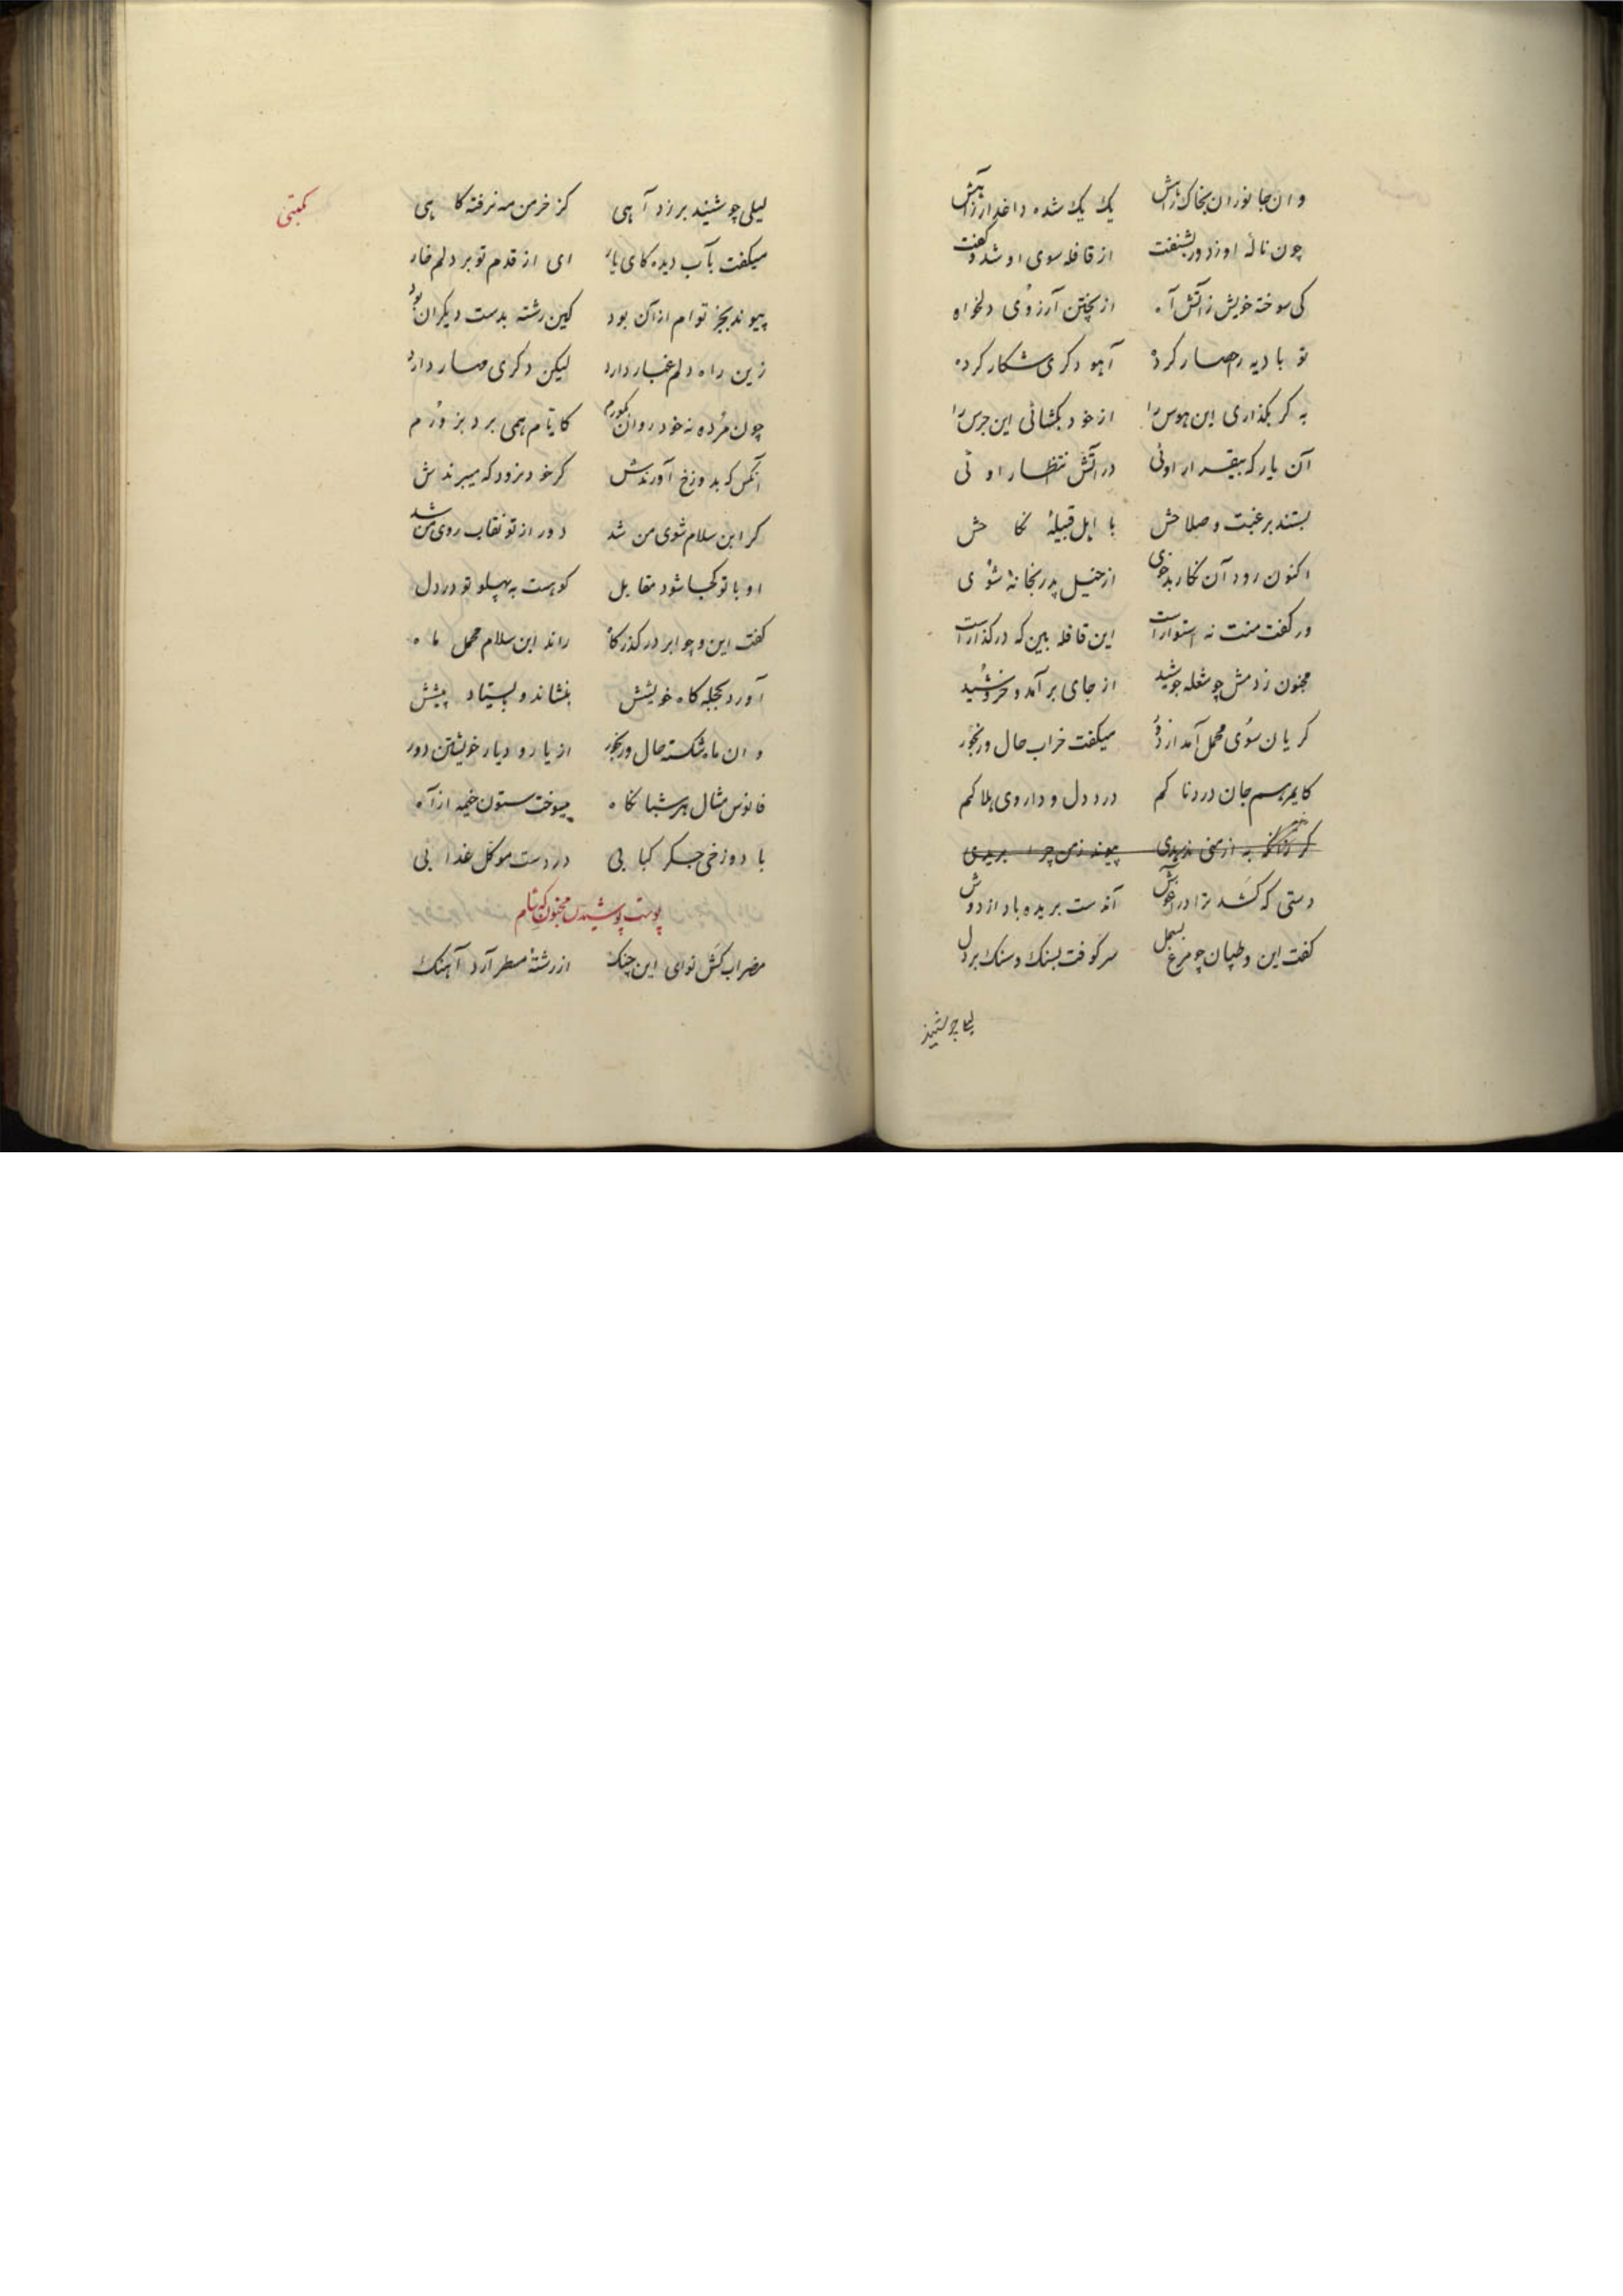 وان جانوران بخاک راهش یک یک شده داغدار ز آهش
چون نالهٔ او ز دور بشنفت از قافله سوی او شد و کفت
کی سوخته خویش ز آتش آه از پختن آرزوی دلخواه
تو بادیه را حصار کرده آهو دکری شکار کرده
به کر بکذاری این هوس را از خود بکشائی این جرس را
آن یار که بیقرار اوئی در آتش انتظار اوئی
بستند برغبت و صلاحش با اهل قبیلهٔ نکاحش
اکنون رود آن نکار بدخوی از خیل پدر بخانهٔ شوی
ور کفت منت نه استوار است این قافله بین که در کذار است
مجنون ز دمش چو شعله جوشید از جای برآمد و خروشید
کریان سوی محمل آمد از دور میکفت خراب حال و رنجور
کای مرهم جان دردناکم درد دل و داروی هلاکم
به از منی ندیدی پیوند ز من چرا بریدی
دستی که کشد ترا در آغوش آندست بریده باد از دوش
کفت این و طپان چو مرغ بسمل سر کوفت بسنک و سنک بر دل
لیلی چو شنید
لیلی چو شنید برزد آهی کز خرمن مه نرفته کاهی
میکفت بآب دیده کای یار ای از قدم تو بر دلم خار
پیوند بجز توام از آن بود کین رشته بدست دیکران بود
زین راه دلم غبار دارد لیکن دکری مهار دارد
چون مرده نه خود روان بکورم کایام همی برد بزورم
آنکس که بدوزخ آورندش کر خود نرود که میبرندش
کر ابن سلام شوی من شد دور از تو نقاب روی من شد
او با تو کجا شود مقابل کو هست به پهلو تو در دل
کفت این و چو ابر در کذرکاه راند ابن سلام محمل ماه
آورد بحجله کاه خویشش بنشاند و بیستاد پیشش
وان ماه شکسته حال و رنجور از یار و دیار خویشتن دور
فانوس مثال هر شبانکاه میسوخت ستون خیمه از آه
با دوزخی جکر کبابی در دست موکل عذابی
پوست پوشیدن مجنون
مضراب کش نوای این چنک از رشتهٔ مسطر آرد آهنک